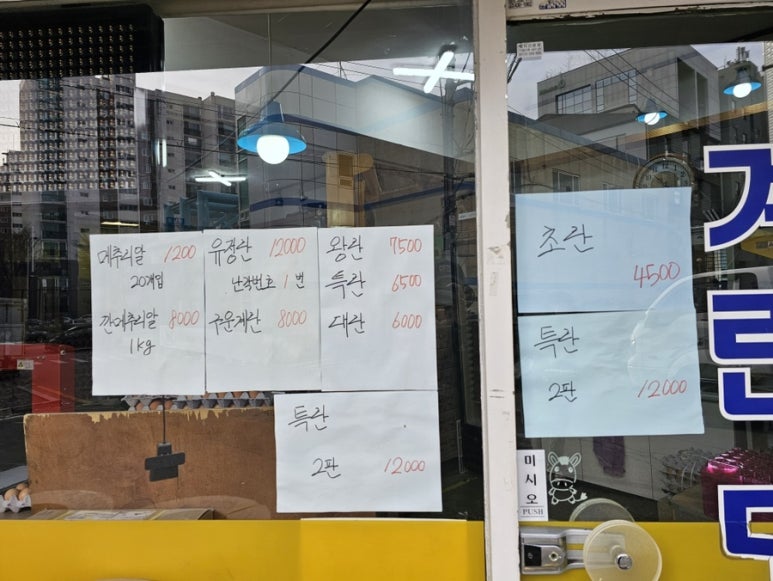 메추리알 1200
20개입
깐메추리알 8000
1kg
유정란 12000
난각번호 1번
구운계란 8000
왕란 7500
특란 6500
대란 6000
특란
2판 12000
초란
4500
특란
2판 12000
미시오
PUSH
계란